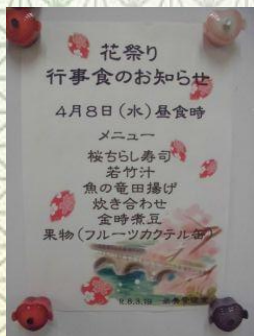 花祭り
行事食のお知らせ
4月8日(水)昼食時
メニュー
桜ちらし寿司
若竹汁
魚の竜田揚げ
炊き合わせ
金時煮豆
果物(フルーツカクテル缶)